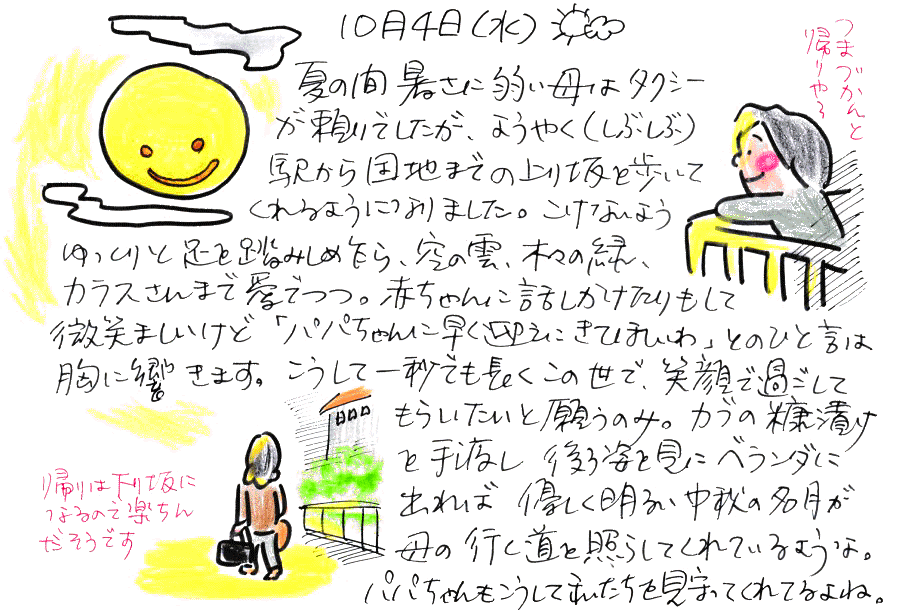 10月4日(水)
つまづかんと
帰りやろ
夏の間 暑さに弱い母はタクシー
が頼りでしたが、ようやく(しぶしぶ)
駅から団地までの上り坂を歩いて
くれるようになりました。こけないよう
ゆっくりと足を踏みしめながら、空の雲、木々の緑、
カラスさんまで愛でつつ。赤ちゃんに話しかけたりもして
微笑ましいけど「パパちゃんに早く迎えにきてほしいわ」とのひと言は
胸に響きます。こうして一秒でも長くこの世で、笑顔で過ごして
もらいたいと願うのみ。カブの糠漬け
を手渡し 後ろ姿を見にベランダに
出れば 優しく明るい中秋の名月が
母の行く道を照らしてくれているような。
パパちゃんもこうして私たちを見守ってくれてるよね。
帰りは下り坂に
なるので楽ちん
だそうです